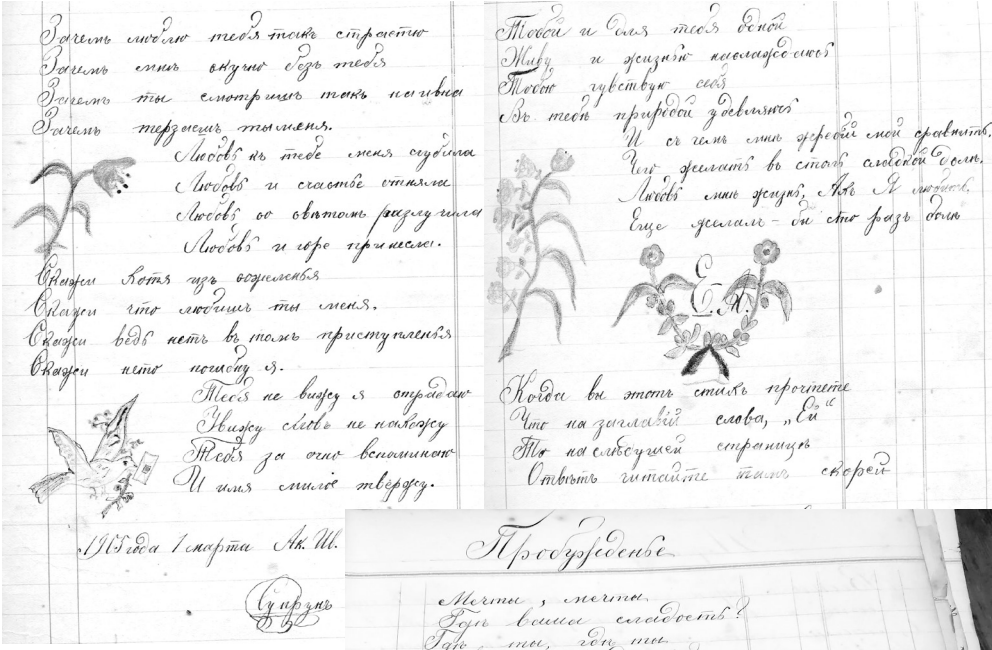 Зачемъ люблю тебя такъ страстно
Зачемъ мнѣ скучно безъ тебя
Зачемъ ты смотришъ такъ наивна
Зачемъ терзаешъ ты меня.
Любовь къ тебе меня сгубила
Любовь и счастье отняла
Любовь со свѣтомъ разлучила
Любовь и горе принесла.
Скажи хотя изъ сожеленья
Скажи что любишъ ты меня.
Скажи ведь нетъ въ томъ приступленья
Скажи нето погибну я.
Тебя не вижу я страдаю
Увижу словъ не нахожу
Тебя за очно вспоминаю
И имя милое твержу.
1915 года 1 марта Ак. Ш.
Супрунъ
Тобой и для тебя одной
Живу и жизнью наслаждаюсь
Тобою чувствую себя
Въ тебѣ природой удевляюсь
И съ чемъ мнѣ жребій мой сравнить.
Чего желать въ столь сладкой доли.
Любовь мнѣ жизнь, Ахъ Я люблю
Еще желалъ-бы сто разъ доли
Е.А.
Когда вы этотъ стихъ прочтете
Что на заглавій слова, „Ей“
То на слѣдущей страницѣ
Отвѣтъ читайте тамъ скорей
Пробужденье
Мечты, мечты
Гдѣ ваша сладость?
Гдѣ ты, гдѣ ты